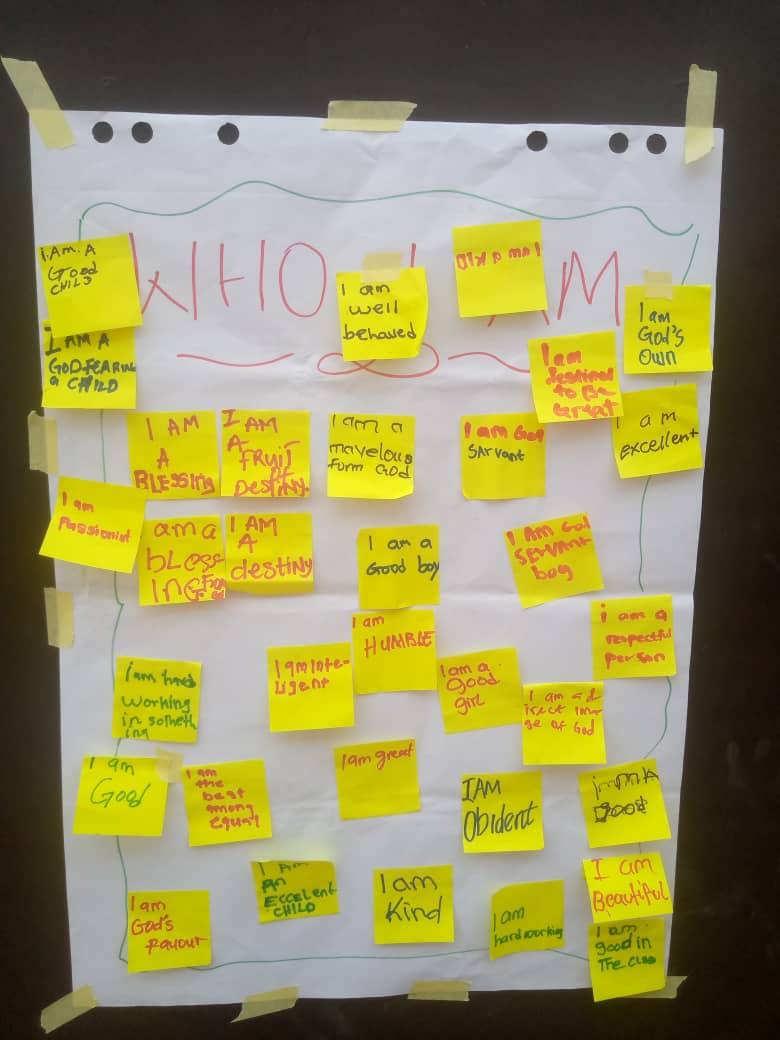 WHO I AM
I. Am. A
Good
CHILD
I am
well
behaved
I am a kid
I am
God's
own
I AM A
GOD. FEARING
a CHILD
I am
destined
to Be
Great
I AM
A
BLESSING
I AM
A
FRUIT
OF
DESTINY.
I am a
mavelous
form GOD
I am God
Sarvant
I am
excellent
I am
Passionist
am a
bless
ING
I AM
A
destiny
I am a
Good boy
I AM God
SERVANT
boy
I am
HUMBLE
i am a
respectful
person
i am hard
working
in someth
ing
I am Inte-
ligent
I am a
good
girl
I am a d
irect ima
ge of God
I am
Good
I am
the
best
among
equal
I am great
IAM
Obident
I am
God's
Favour
I AM
AN
ECCELENT
CHILD
I am
Kind
I am
hardworking
I am
Beautiful
I am
good in
The class